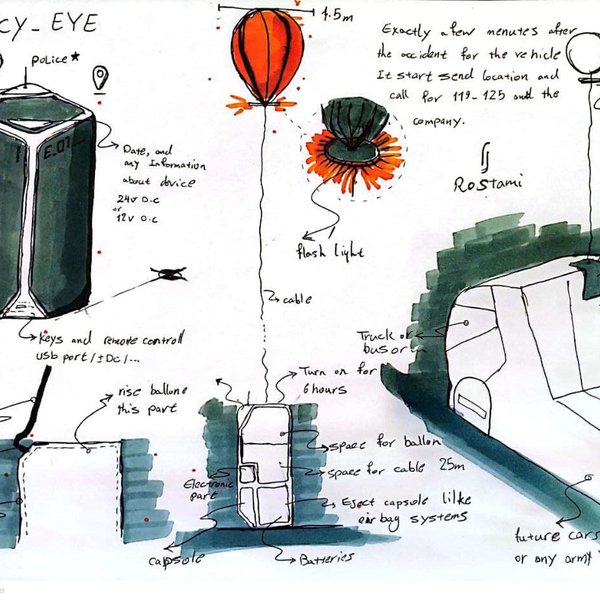 CY_EYE
POLICE*
E.07
Date, and
any Information
about device
24v D.C
or
12v D.C
Keys and remote controll
USB port / ± DC / ...
rise ballune
this part
1.5m
flash light
cable
Turn on for
6 hours
space for ballon
space for cable 25m
Electronic
part
Eject capsule lilke
eir bag systems
capsole
Batteries
Exactly a few menutes after
the accident for the vehicle
It start send location and
call for 119-125 and the
company.
Rostami
Truck or
bus or
future cars
or any army